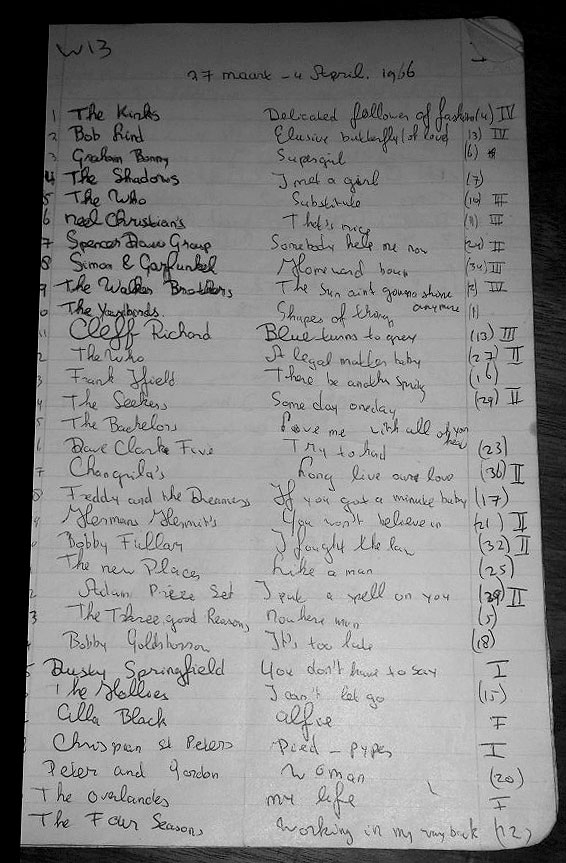 W13
1
27 maart - 4 April. 1966
1 The Kinks Delicated follower of fashion (4) IV
2 Bob Lind Elusive butterfly (of love) (3) IV
3 Graham Bonny Supergirl (6)
4 The Shadows I met a girl (7)
5 The Who Substitute (10) III
6 Neel Christian's That's nice (11) III
7 Spencer Davis Group Somebody help me now (24) II
8 Simon & Garfunkel Homeward boun (34) III
9 The Walker Brothers The sun aint gonna shine anymore (2) IV
0 The Yardbirds. Shapes of things (1)
11 Cleff Richard Blue turns to grey (13) III
2 The Who A legal matter baby (27) II
3 Frank Ifield There be another spring (16)
4 The Seekers Some day oneday (29) II
5 The Bachelors Love me with all of your hear
6 Dave Clarke Five Try to hard (23)
7 Changrila's Long live oure love (36) II
8 Freddy and the Dreamers If you got a minute baby (17)
9 Hermans Hermit's You won't believe in (21) II
0 Bobby Fullar I fought the law (32) II
1 The new Places Like a man (25)
2 Adam Preze Set I put a spell on you (39) II
3 The Three good Reasons nowhere man (5)
4 Bobby Goldsboro It's too late (18)
5 Dusty Springfield You don't have to say I
The Hollies I can't let go (15)
Cilla Black alfie I
Chrispian st Peters Pied - pyper I
Peter and Gordon Woman (20)
The Overlandes my life I
The Four Seasons working in my way back (12)